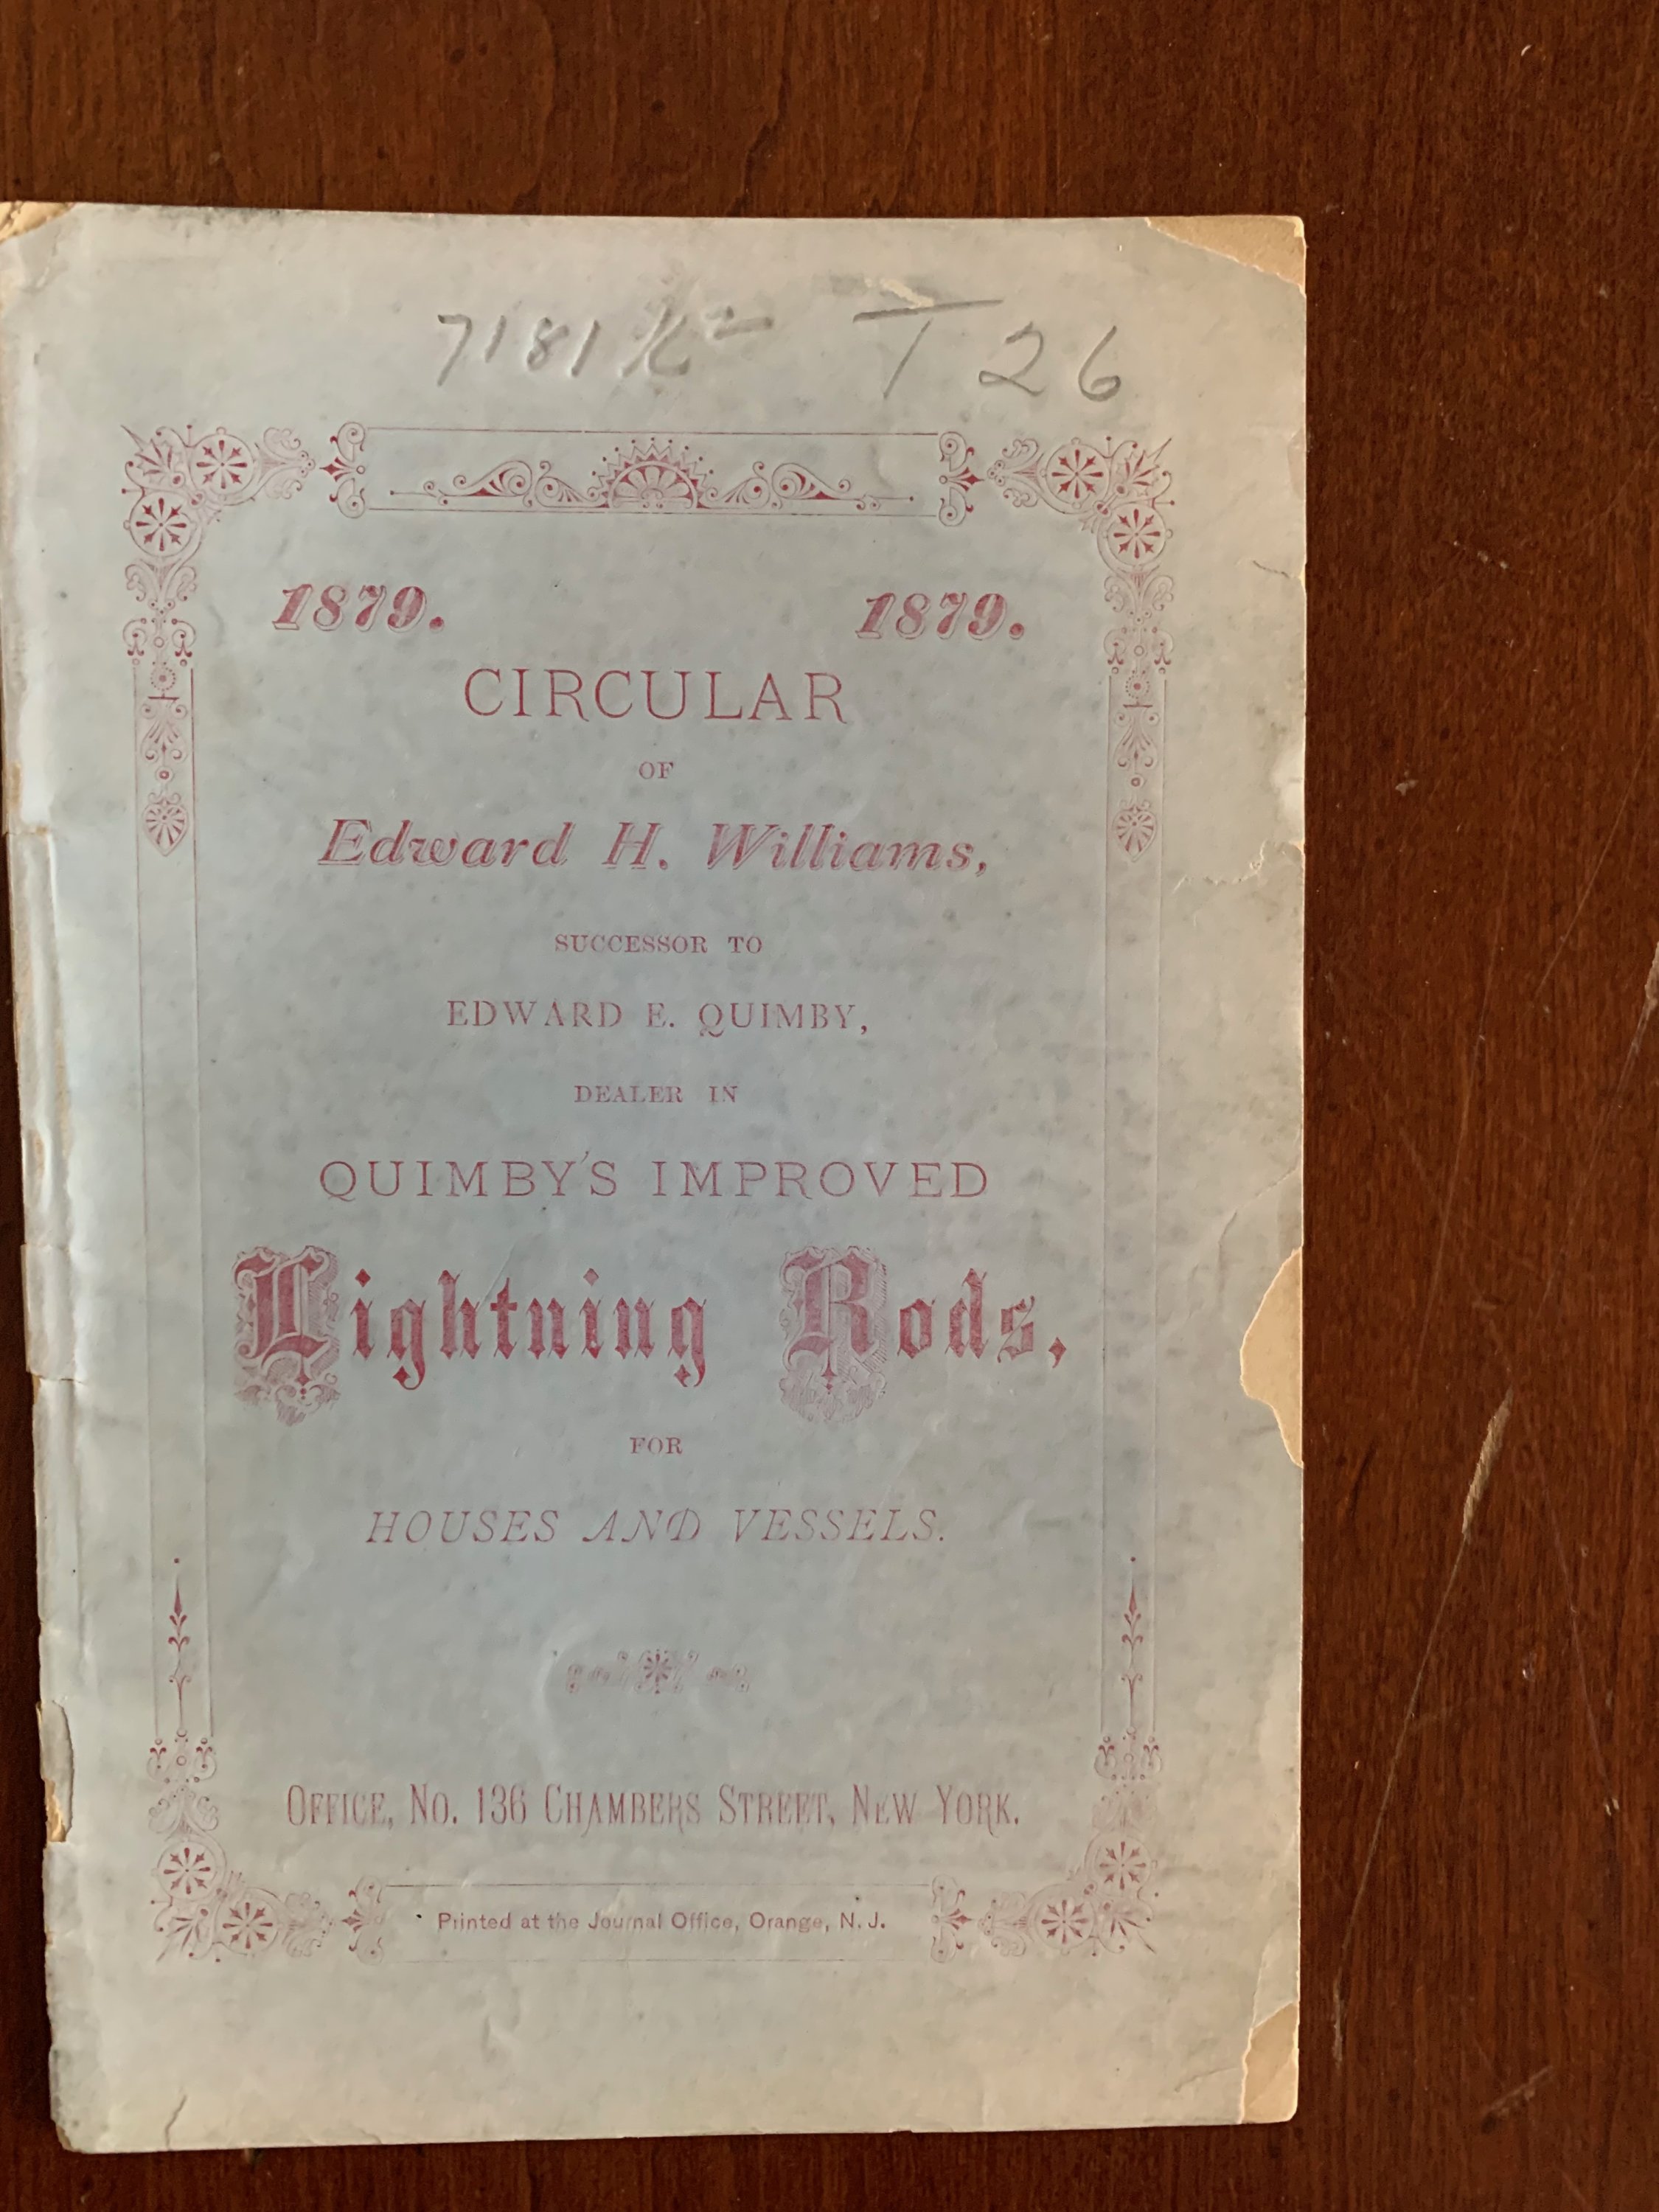 T 26
1879. 1879.
CIRCULAR
OF
Edward H. Williams,
SUCCESSOR TO
EDWARD E. QUIMBY,
DEALER IN
QUIMBY'S IMPROVED
Lightning Rods,
FOR
HOUSES AND VESSELS.
OFFICE, NO. 136 CHAMBERS STREET, NEW YORK.
Printed at the Journal Office, Orange, N. J.